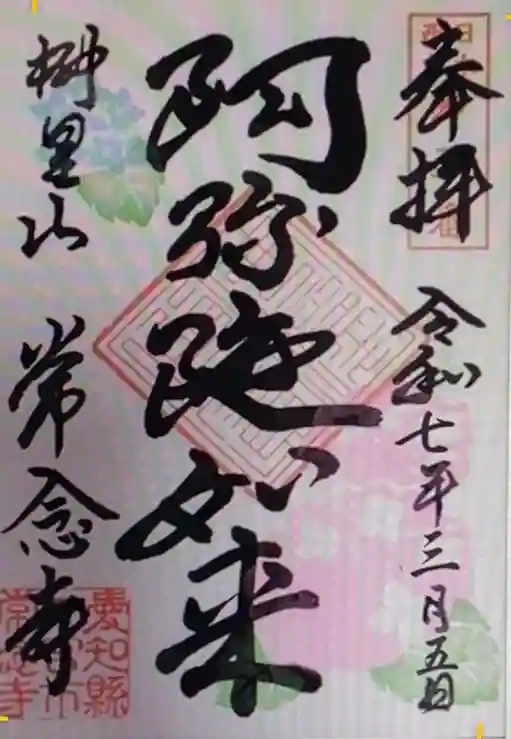 奉拝
令和七年三月五日
阿弥陀如来
栁里山
常念寺
愛知縣
常念寺